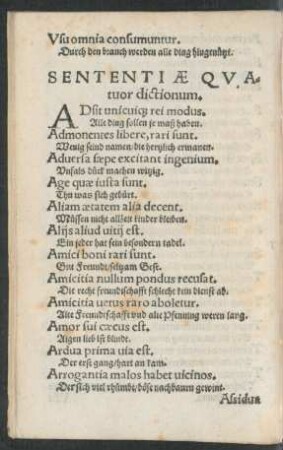 Vsu omnia consumuntur.
Durch den brauch werden alle ding hingenützt.
SENTENTIÆ QVA-
tuor dictionum.
ADsit unicuiq; rei modus.
Alle ding sollen je maß haben.
Admonentes libere, rari sunt.
Wenig seind namen/die hertzlich ermanen.
Aduersa sæpe excitant ingenium.
Vnfals dück machen witzig.
Age quæ iusta sunt.
Thu was sich gebürt.
Aliam ætatem alia decent.
Müssen nicht allzeit kinder bleiben.
Alijs aliud uitij est.
Ein jeder hat sein besondern tadel.
Amici boni rari sunt.
Gut Freund/seltzam Gest.
Amicitia nullum pondus recusat.
Die recht freundschafft schlecht kein dienst ab.
Amicitia uetus raro aboletur.
Alte Freundschafft vnd alte Pfenning weren lang.
Amor sui cæcus est.
Aigen lieb ist blindt.
Ardua prima uia est.
Der erst gang/hart an kam.
Arrogantia malos habet uicinos.
Der sich viel rhümbt/böse nachbaurn gewint.
Assidua